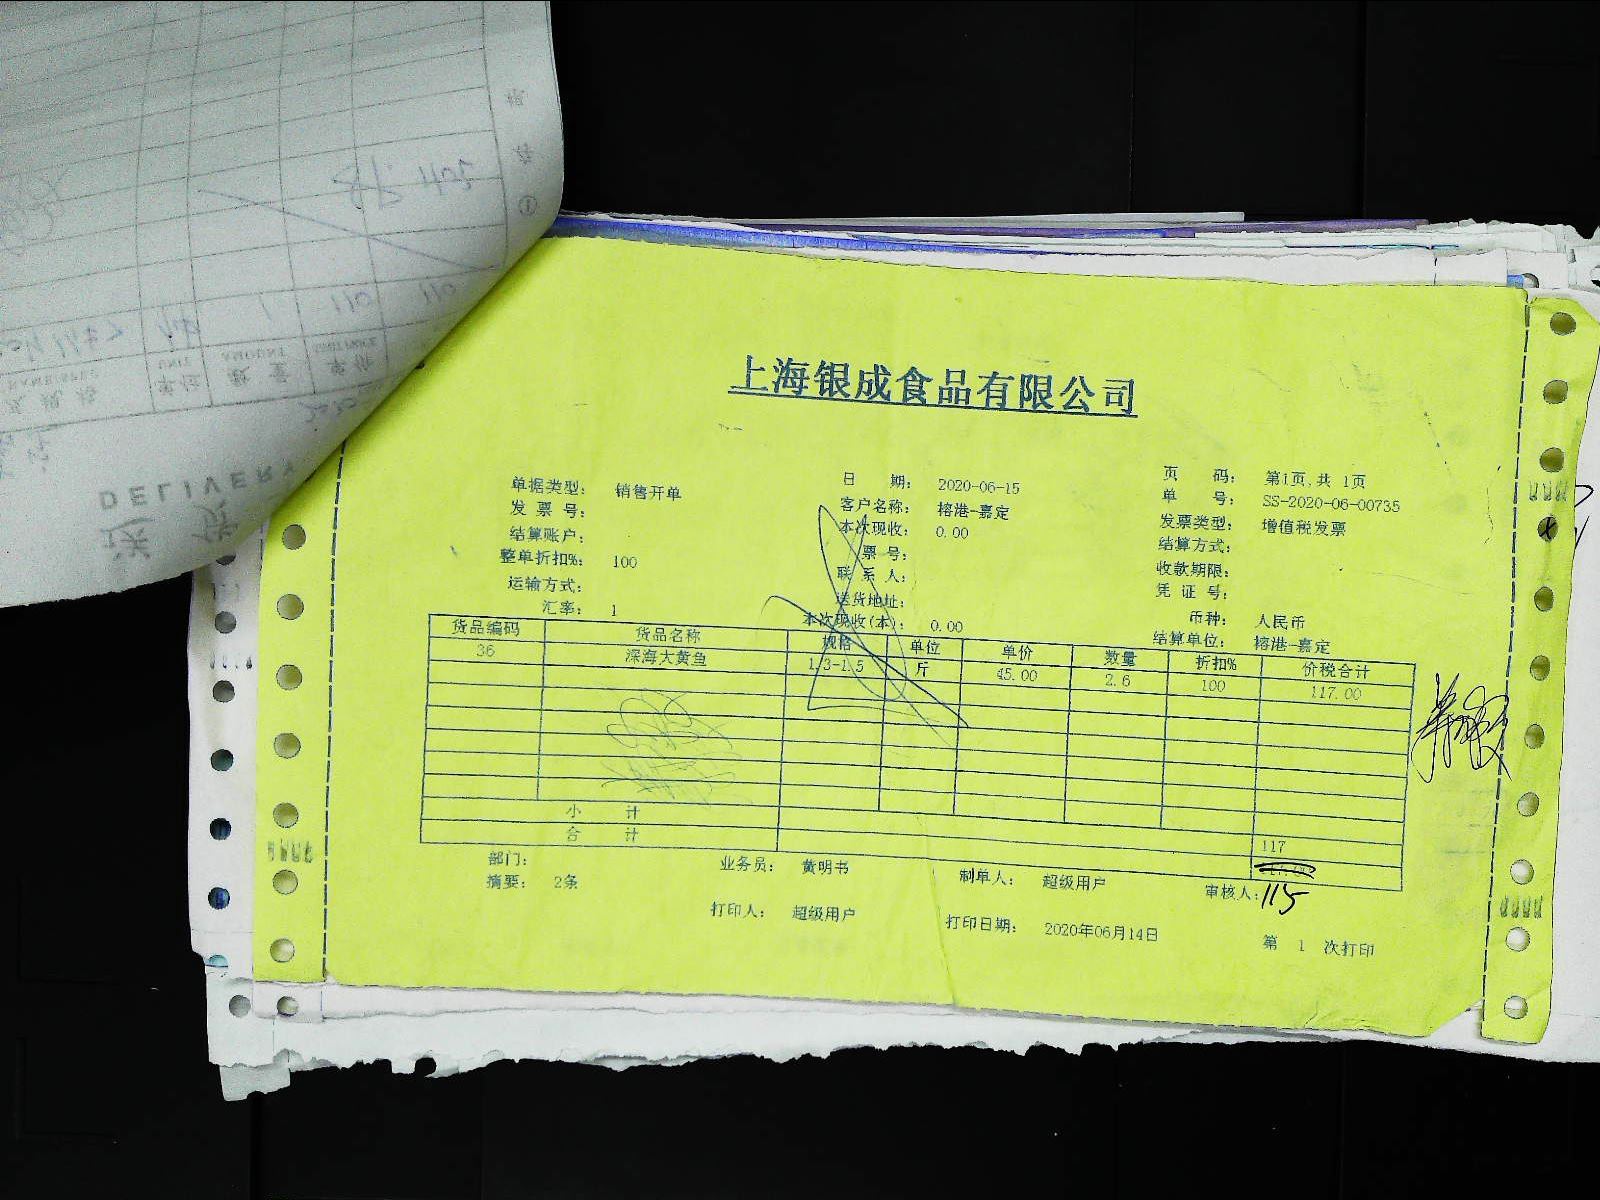 上海银成食品有限公司
单据类型： 销售开单 日 期： 2020-06-15 页 码： 第1页,共 1页
发 票 号： 客户名称： 榕港-嘉定 单 号： SS-2020-06-00735
结算账户： 本次现收： 0.00 发票类型： 增值税发票
整单折扣%： 100 票 号： 结算方式：
运输方式： 联 系 人： 收款期限：
汇率： 1 送货地址： 凭 证 号：
本次现收(本)： 0.00 币种： 人民币
结算单位： 榕港-嘉定
货品编码 货品名称 规格 单位 单价 数量 折扣% 价税合计
36 深海大黄鱼 1.3-1.5 斤 45.00 2.6 100 117.00
小 计 117
合 计
115
部门： 业务员： 黄明书 制单人： 超级用户 审核人：
摘要： 2条
打印人： 超级用户 打印日期： 2020年06月14日 第 1 次打印
DELIVERY